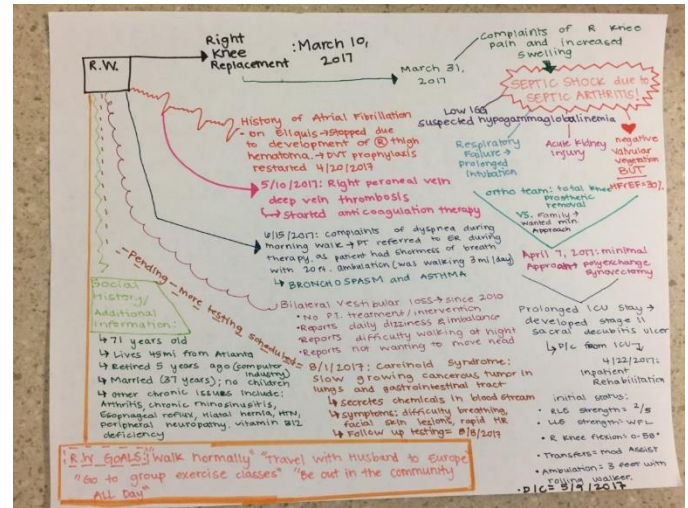 R.W.
Right
Knee
Replacement
:March 10,
2017
March 31,
2017
complaints of R knee
pain and increased
swelling
SEPTIC SHOCK due to
SEPTIC ARTHRITIS!
Low IGG
suspected hypogammaglobalinemia
Respiratory
Failure →
prolonged
intubation
Acute Kidney
Injury
negative
valvular
vegetation
BUT
HFrEF=30%
ortho team: total knee
prosthetic
removal
VS. Family →
wanted min.
Approach
April 7, 2017: minimal
Approach → polyexchange
synovectomy
Prolonged ICU stay →
developed stage II
sacral decubitis ulcer
↳ D/C from ICU →
4/22/2017:
Inpatient
Rehabilitation
initial status:
• RLE strength = 2/5
• LLE strength = WFL
• R Knee flexion = 0-58°
• Transfers = mod Assist
• Ambulation = 3 feet with
rolling walker.
• D/C = 5/9/2017
History of Atrial Fibrillation
- on Eliquis → stopped due
to development of Ⓡ thigh
hematoma. → DVT prophylaxis
restarted 4/20/2017
5/10/2017: Right peroneal vein
deep vein thrombosis
↳ Started anticoagulation therapy
6/15/2017: complaints of dyspnea during
morning walk → PT referred to ER during
therapy, as patient had shortness of breath
with 20 ft. ambulation (was walking 3 mi/day)
↳ BRONCHOSPASM and ASTHMA
Bilateral Vestibular loss → since 2010
• No P.T. treatment/intervention
• Reports daily dizziness & imbalance
• Reports difficulty walking at night
• Reports not wanting to move head
-Pending- more testing scheduled=
8/1/2017: Carcinoid Syndrome:
slow growing cancerous tumor in
lungs and gastrointestinal tract
↳ secretes chemicals in blood stream
↳ symptoms: difficulty breathing,
facial skin lesions, rapid HR
↳ Follow up testing = 8/8/2017
Social
History/
Additional
Information:
↳ 71 years old
↳ Lives 45mi from Atlanta
↳ Retired 5 years ago (computer
industry)
↳ Married (37 years); no children
↳ other chronic issues include:
Arthritis, chronic rhinosinusitis,
Esophageal reflux, Hiatal hernia, HTN,
peripheral neuropathy, vitamin B12
deficiency
R.W. GOALS: "Walk normally" "Travel with Husband to Europe"
"Go to group exercise classes" "Be out in the community
ALL Day"